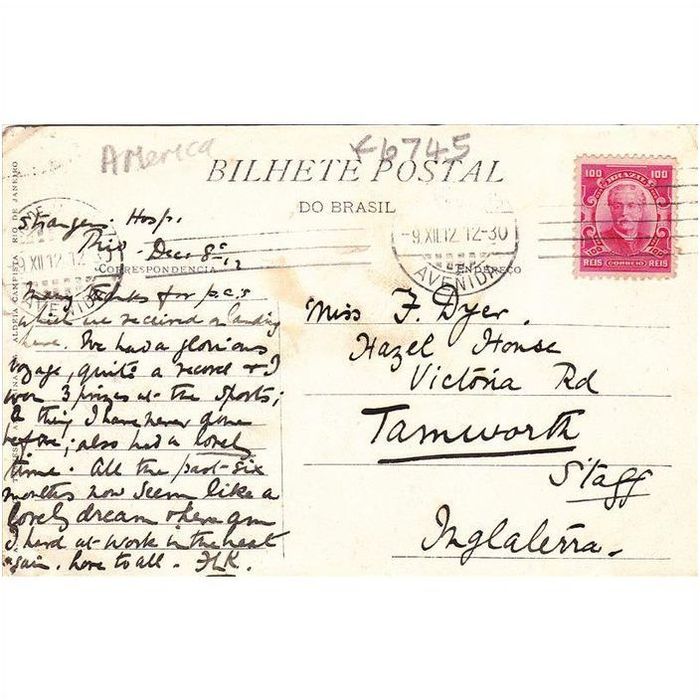 America
6745
BILHETE POSTAL
DO BRASIL
BRAZIL
100 100
REIS CORREIO REIS
-9.XII.12 12-30
AVENIDA
XII.12 12
AVENIDA
ALDEIA CAMPISTA RIO DE JANEIRO
CORRESPONDENCIA
ENDEREÇO
Strangers Hosp.
Rio Dec. 8th 12
Many thanks for p.c.s
which we received on landing
here. We had a glorious
voyage, quite a record & I
won 3 prizes at the Sports;
a thing I have never done
before; also had a lovely
time. All the past six
months now seem like a
lovely dream & here am
I hard at work in the heat
again. Love to all. FLK.
Miss F. Dyer.
Hazel House
Victoria Rd
Tamworth
Staff
Inglaterra.